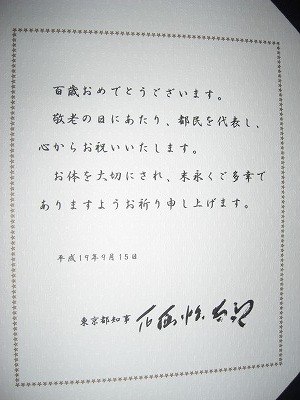 百歳おめでとうございます。
敬老の日にあたり、都民を代表し、
心からお祝いいたします。
お体を大切にされ、末永くご多幸で
ありますようお祈り申し上げます。
平成19年9月15日
東京都知事 石原慎太郎